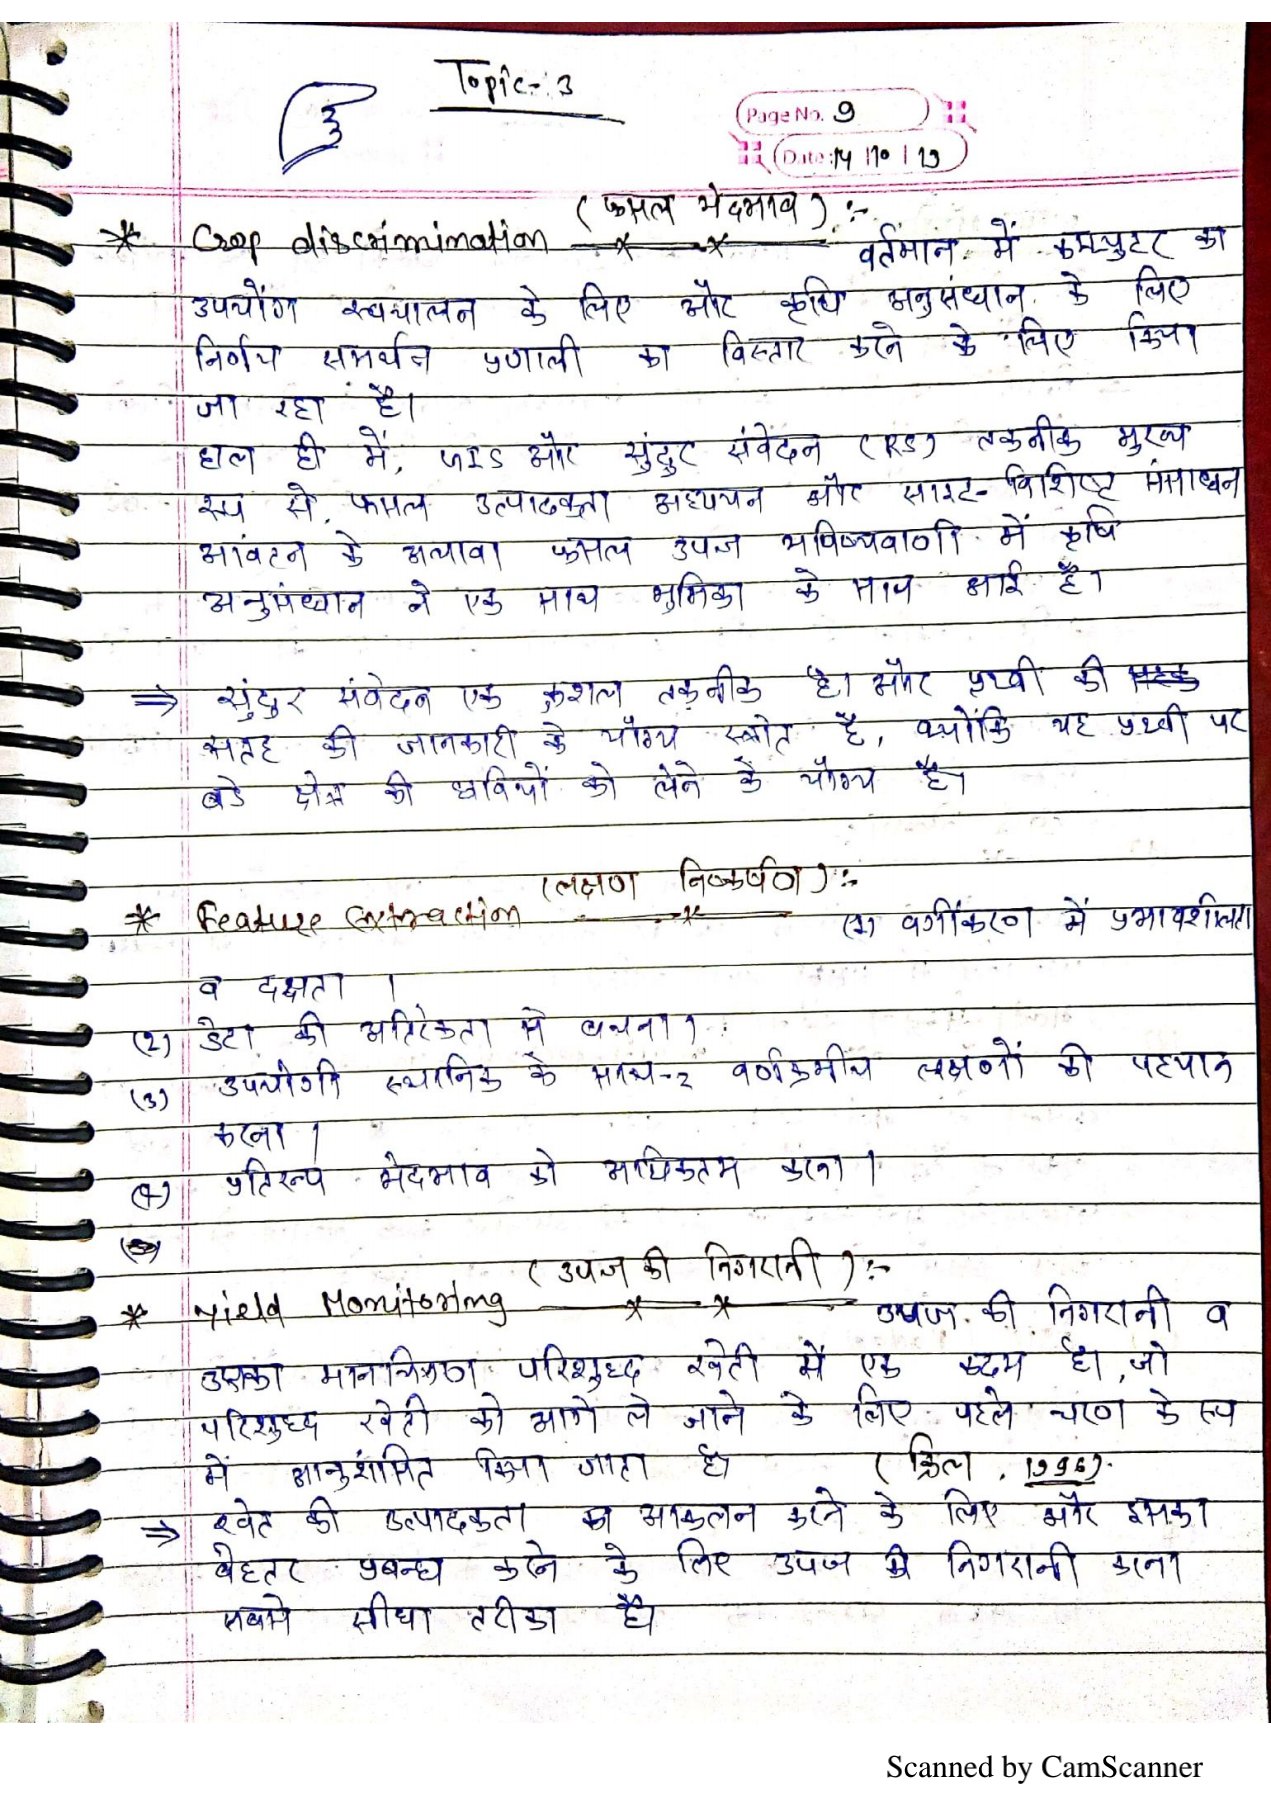 Topic-: 3
3
Page No. 9
Date: 14 | 10 | 19
(फसल भेदभाव) :-
* Crop discrimination वर्तमान में कम्प्युटर का
उपयोग स्वचालन के लिए और कृषि अनुसंधान के लिए
निर्णय समर्थन प्रणाली का विस्तार करने के लिए किया
जा रहा है।
हाल ही में, GIS और सुंदुर संवेदन (RS) तकनीक मुख्य
रूप से फसल उत्पादकता अध्ययन और साइट- विशिष्ट संसाधन
आवंटन के अलावा फसल उपज भविष्यवाणी में कृषि
अनुसंधान ने एक साथ भुमिका के साथ आई है।
⇒ सुंदुर संवेदन एक कुशल तकनीक है। और पृथ्वी की
सतह की जानकारी के योग्य स्त्रोत है, क्योंकि यह पृथ्वी पर
बडे क्षेत्र की छवियों को लेने के योग्य है।
(लक्षण निष्कर्षण) :-
* Feature Extraction (1) वर्गीकरण में प्रभावशीलता
व दक्षता ।
(2) डेटा की अतिरेकता से बचना।
(3) उपयोगी स्थानिक के साथ-2 वर्णक्रमीय लक्षणों की पहचान
करना ।
(4) प्रतिरूप भेदभाव को अधिकतम करना ।
(उपज की निगरानी) :-
* Yield Monitoring उपज की निगरानी व
उसका मानचित्रण परिशुध्द खेती में एक कदम है। जो
परिशुध्द खेती को आगे ले जाने के लिए पहले चरण के रूप
में आनुशंसित किया जाता है। (क्रिल, 1996).
⇒ खेत की उत्पादकता का आकलन करने के लिए और इसका
बेहतर प्रबन्ध करने के लिए उपज की निगरानी करना
सबसे सीधा तरीका है।
Scanned by CamScanner